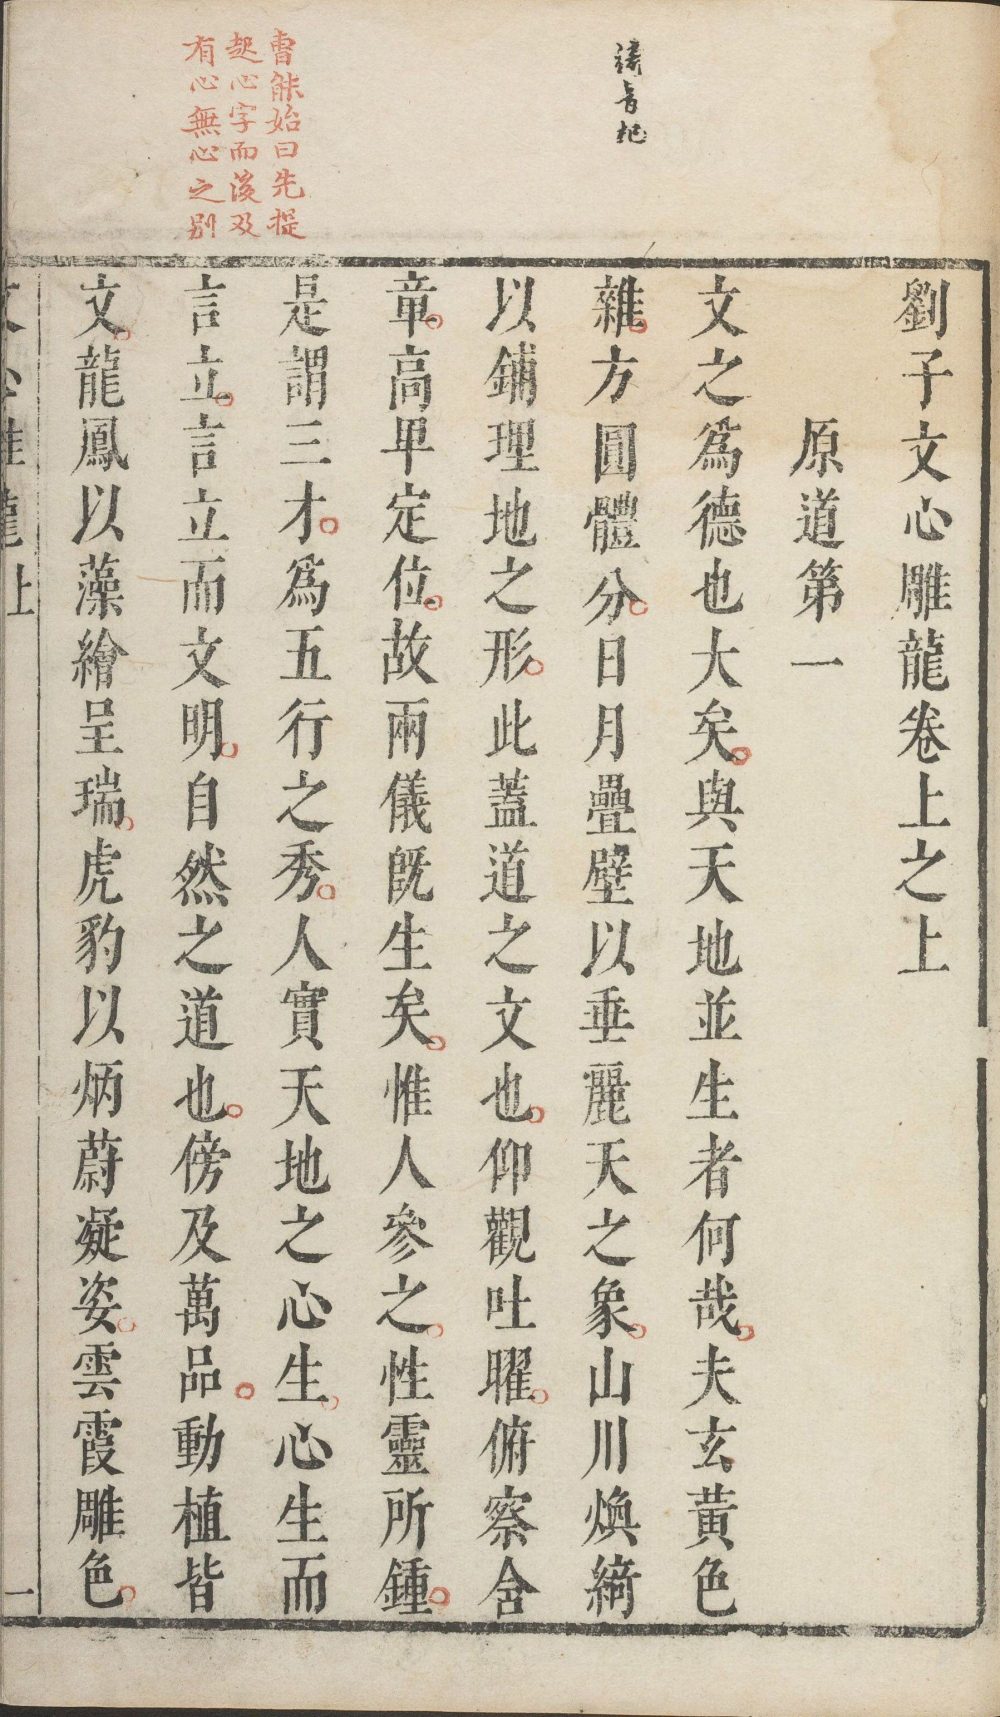 綺音杞
曹能始曰先提
起心字而後及
有心無心之別
劉子文心雕龍卷上之上
原道第一
文之爲德也大矣。與天地並生者何哉。夫玄黃色
雜。方圓體分。日月疊壁以垂麗天之象。山川煥綺
以鋪理地之形。此蓋道之文也。仰觀吐曜。俯察含
章。高卑定位。故兩儀既生矣。惟人參之。性靈所鍾。
是謂三才。爲五行之秀。人實天地之心生。心生而
言立。言立而文明。自然之道也。傍及萬品。動植皆
文。龍鳳以藻繪呈瑞。虎豹以炳蔚凝姿。雲霞雕色。
文心雕龍上
一